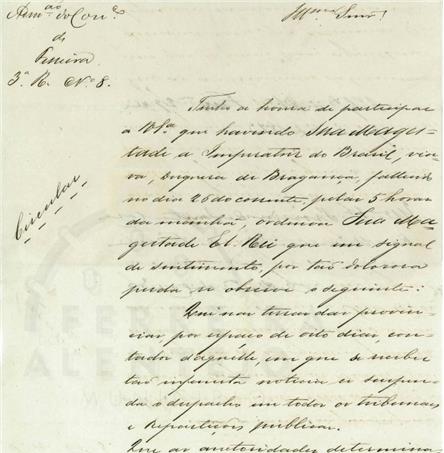 Adm.ão do Con.º
de
Ferreira
3.ª R. Nº 8.
Circular
Illmo Snr.
Tenho a honra de participar
a V.Sª que havendo Sua Mages-
tade a Imperatriz do Brasil, viu-
va, Duqueza de Bragança, fallecido
no dia 26 do corrente, pelas 5 horas
da manhã, ordenou Sua Ma-
gestade El-Rei que em signal
de sentimento, por tão dolorosa
perda se observe o seguinte:
Que nas terras das provin-
cias por espaço de oito dias, con-
tados d'aquelle em que se receber
tão infausta noticia se suspen-
da o despacho em todos os tribunaes
e Repartições publicas.
Que as autoridades determina
FERREIRA
ALENTEJO